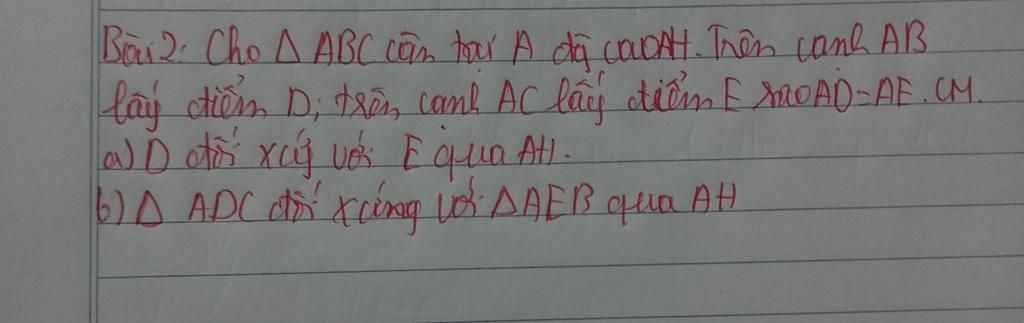 Bài 2: Cho Δ ABC cân tại A đg cao AH. Trên cạnh AB
lấy điểm D; trên cạnh AC lấy điểm E sao AD=AE. CM.
a) D đối xứg với E qua AH.
b) Δ ADC đối xứng với ΔAEB qua AH